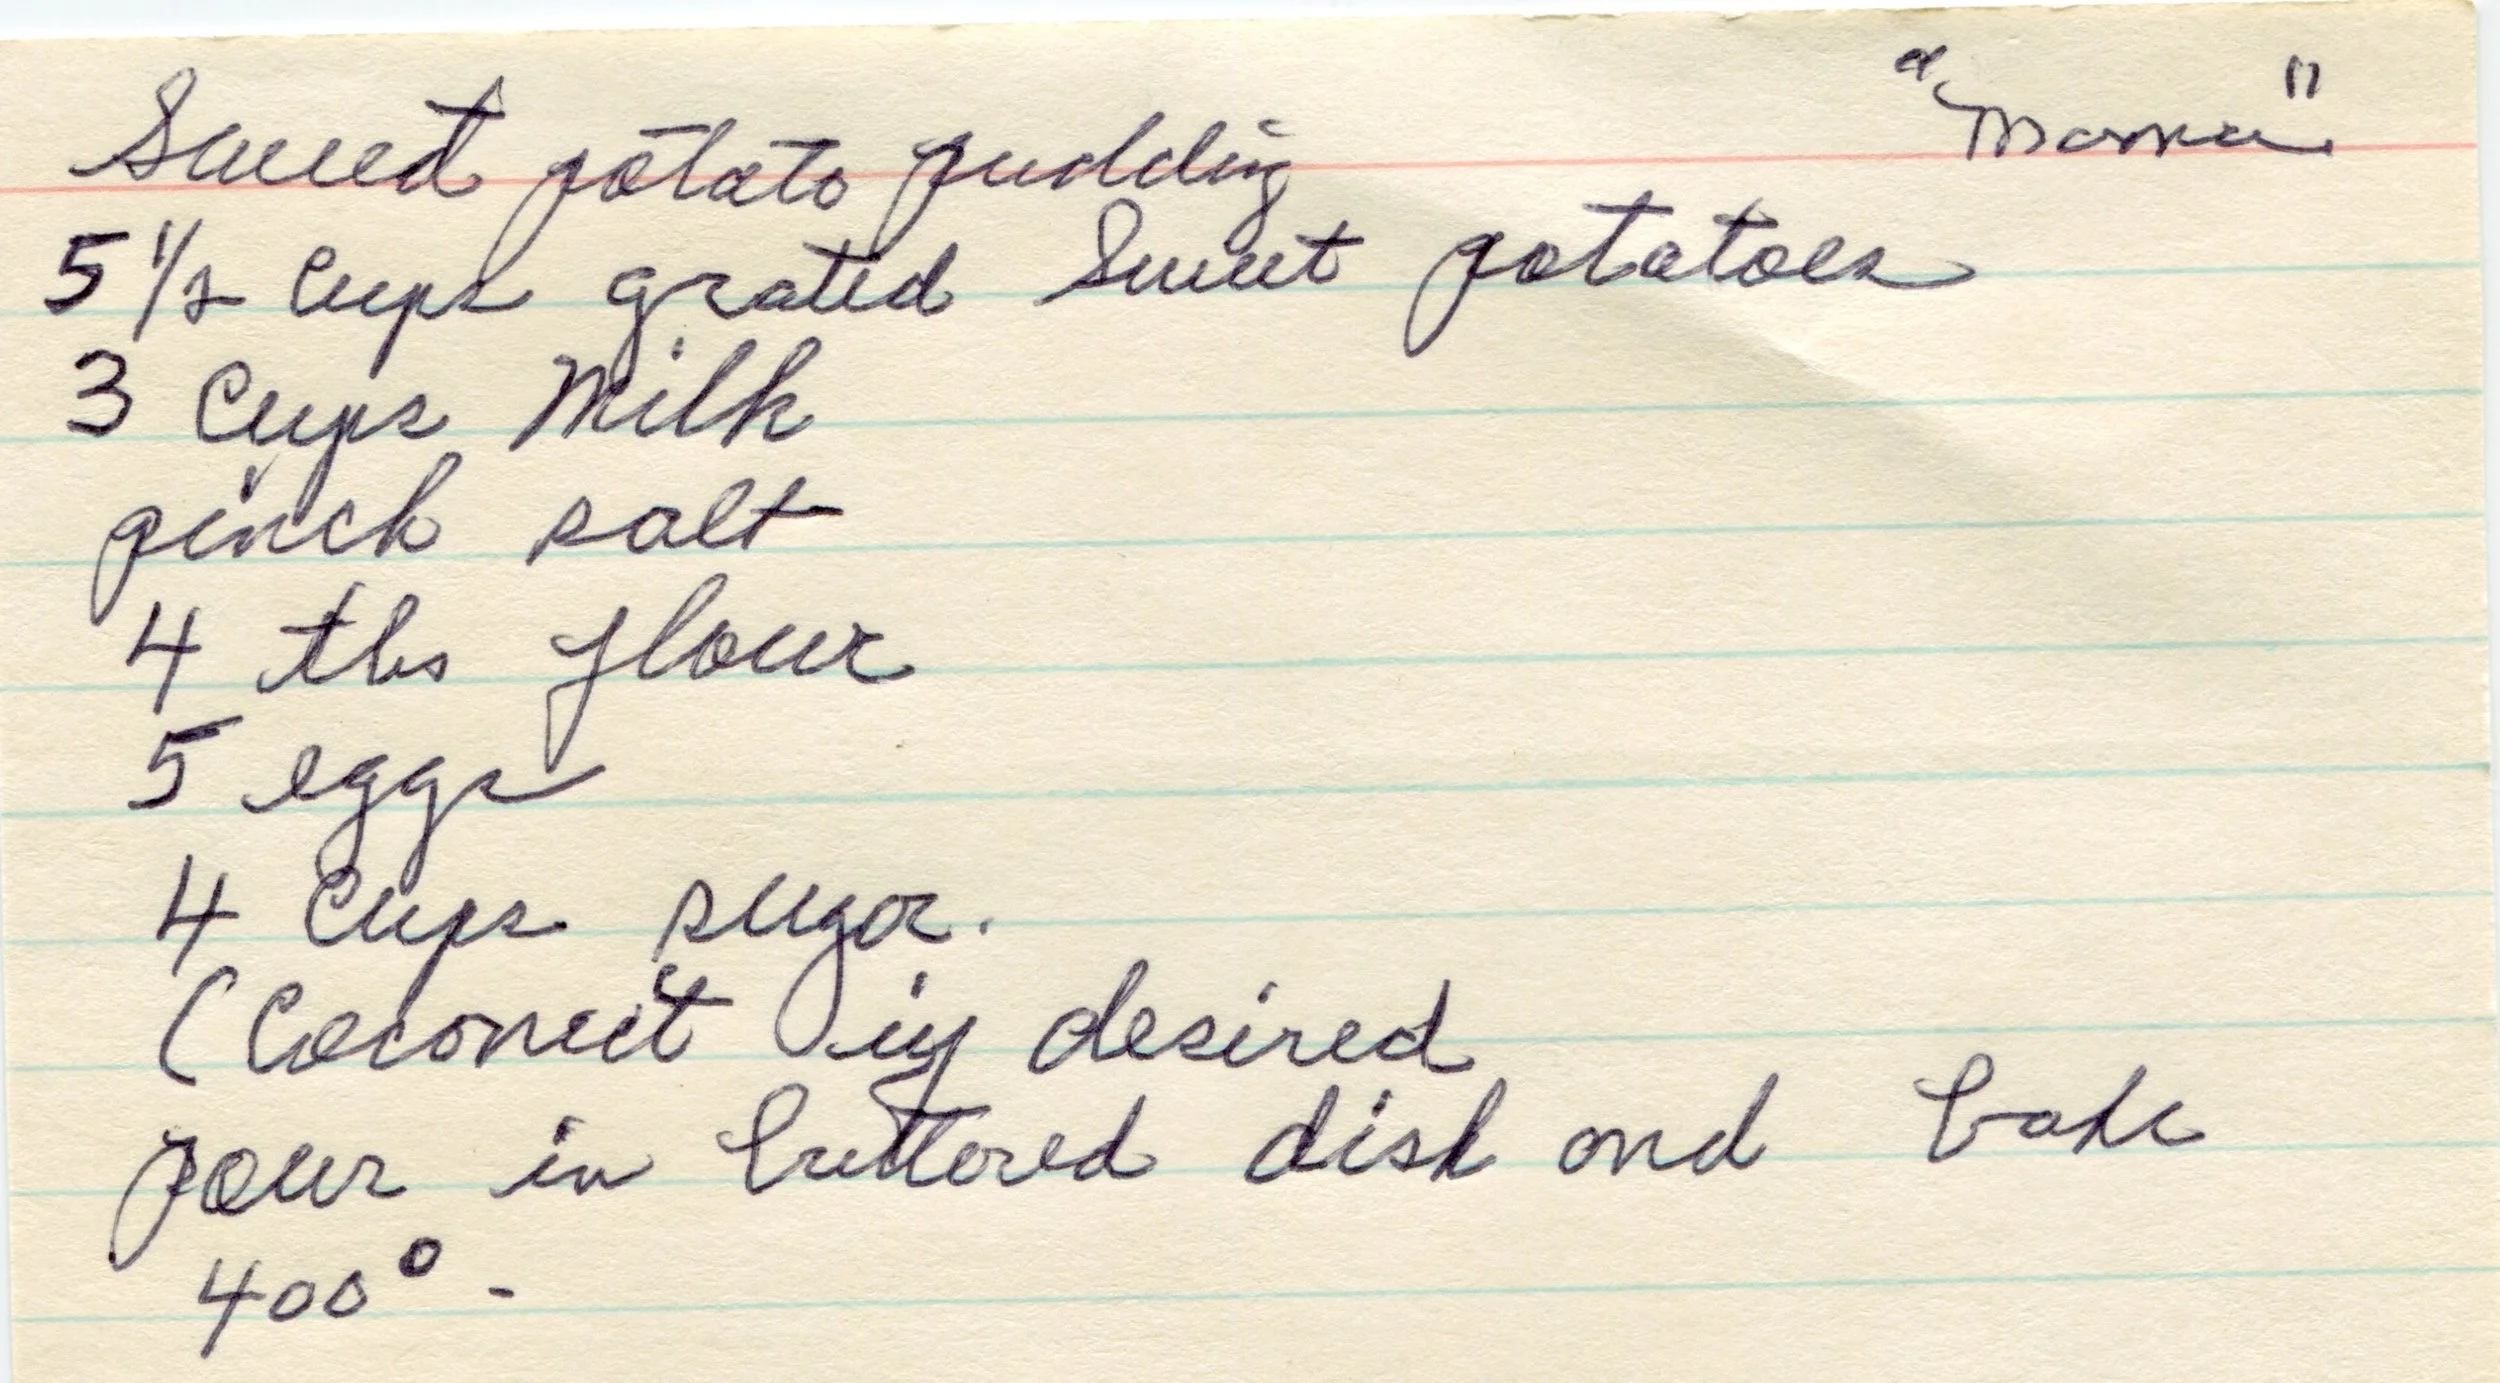 Sweet potato pudding "Mama"
5 1/2 Cups grated Sweet potatoes
3 Cups Milk
pinch salt
4 tbs flour
5 eggs
4 Cups sugar.
(Coconut if desired
pour in buttered dish and bake
400° -